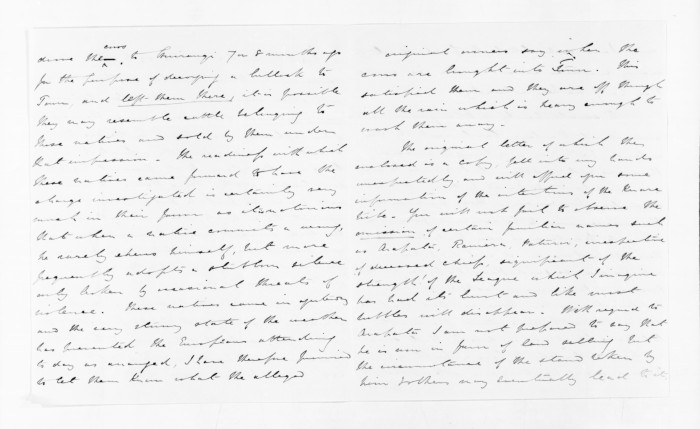 cows
drove the to Thurangi 7 or 8 months ago
for the purpose of decoying a bullock to
Town, and left them there, it is possible
they may resemble cattle belonging to
these natives and sold by them under
that impression. The readiness with which
these natives came forward to have the
charge investigated is certainly very
much in their favor as it is notorious
that when a native commits a wrong,
he rarely shews himself, but more
frequently adopts a stubborn silence
only broken by occasional threats of
violence. These natives came in yesterday
and the very stormy state of the weather
has prevented the Europeans attending
to day as arranged, I have therefore promised
to let them know what the alleged
original owners say when the
cows are brought into Town. This
satisfied them and they are off though
all the rain which is heavy enough to
wash them away.
The original letter of which the
enclosed is a copy, fell into my hands
unexpectedly and will afford you some
information of the intentions of the
tribe. You will not fail to observe the
omission of certain familiar names such
as irrespective
of deceased chiefs, significant of the
strength of the League which I imagine
has had its burst and like most
bubbles will disappear. With regard to
I am not prepared to say that
he is now in favor of land selling but
the circumstance of the stand taken by
him & others may eventually lead to it